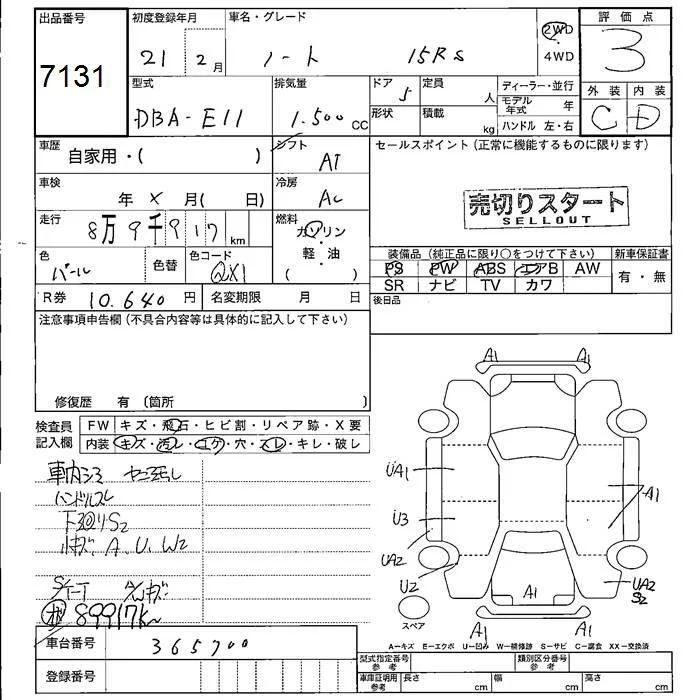 出品番号
7131
初度登録年月
21 年 2 月
車名・グレード
ノート 15RS
2WD
4WD
評価点
3
外装 内装
C D
型式
DBA-E11
排気量
1.500 cc
ドア 5
形状
定員 人
積載 kg
ディーラー・並行
モデル年式 年
ハンドル 左・右
車歴
自家用・( )
シフト
AT
車検
年 X 月( 日)
冷房
AC
走行
8万9千917 km
燃料
ガソリン
軽・油
( )
色
パール
色替
色コード
QX1
R券 10.640 円
名変期限 月 日
セールスポイント(正常に機能するものに限ります)
売切りスタート
SELLOUT
装備品(純正品に限り○をつけて下さい)
PS PW ABS エアB AW
SR ナビ TV カワ
新車保証書
有・無
後日品
注意事項申告欄(不具合内容等は具体的に記入して下さい)
修復歴 有 〔箇所 〕
検査員
記入欄
FW キズ・飛石・ヒビ割・リペア跡・X要
内装 キズ・汚レ・コゲ・穴・スレ・キレ・破レ
車内シミ
ハンドルスレ
下回りS2
小キズ A、U、W2
シート
89917K
車台番号
365700
登録番号
A1 A1
UA1
U3
UA2
U2
A1
A1
UA2
S2
A1 A1
スペア
A―キズ E―エクボ U―凹ミ W―補修跡 S―サビ C―腐食 XX―交換済
型式指定番号
参考
類別区分番号
参考
車庫証明用
参考
長さ cm
幅 cm
高さ cm